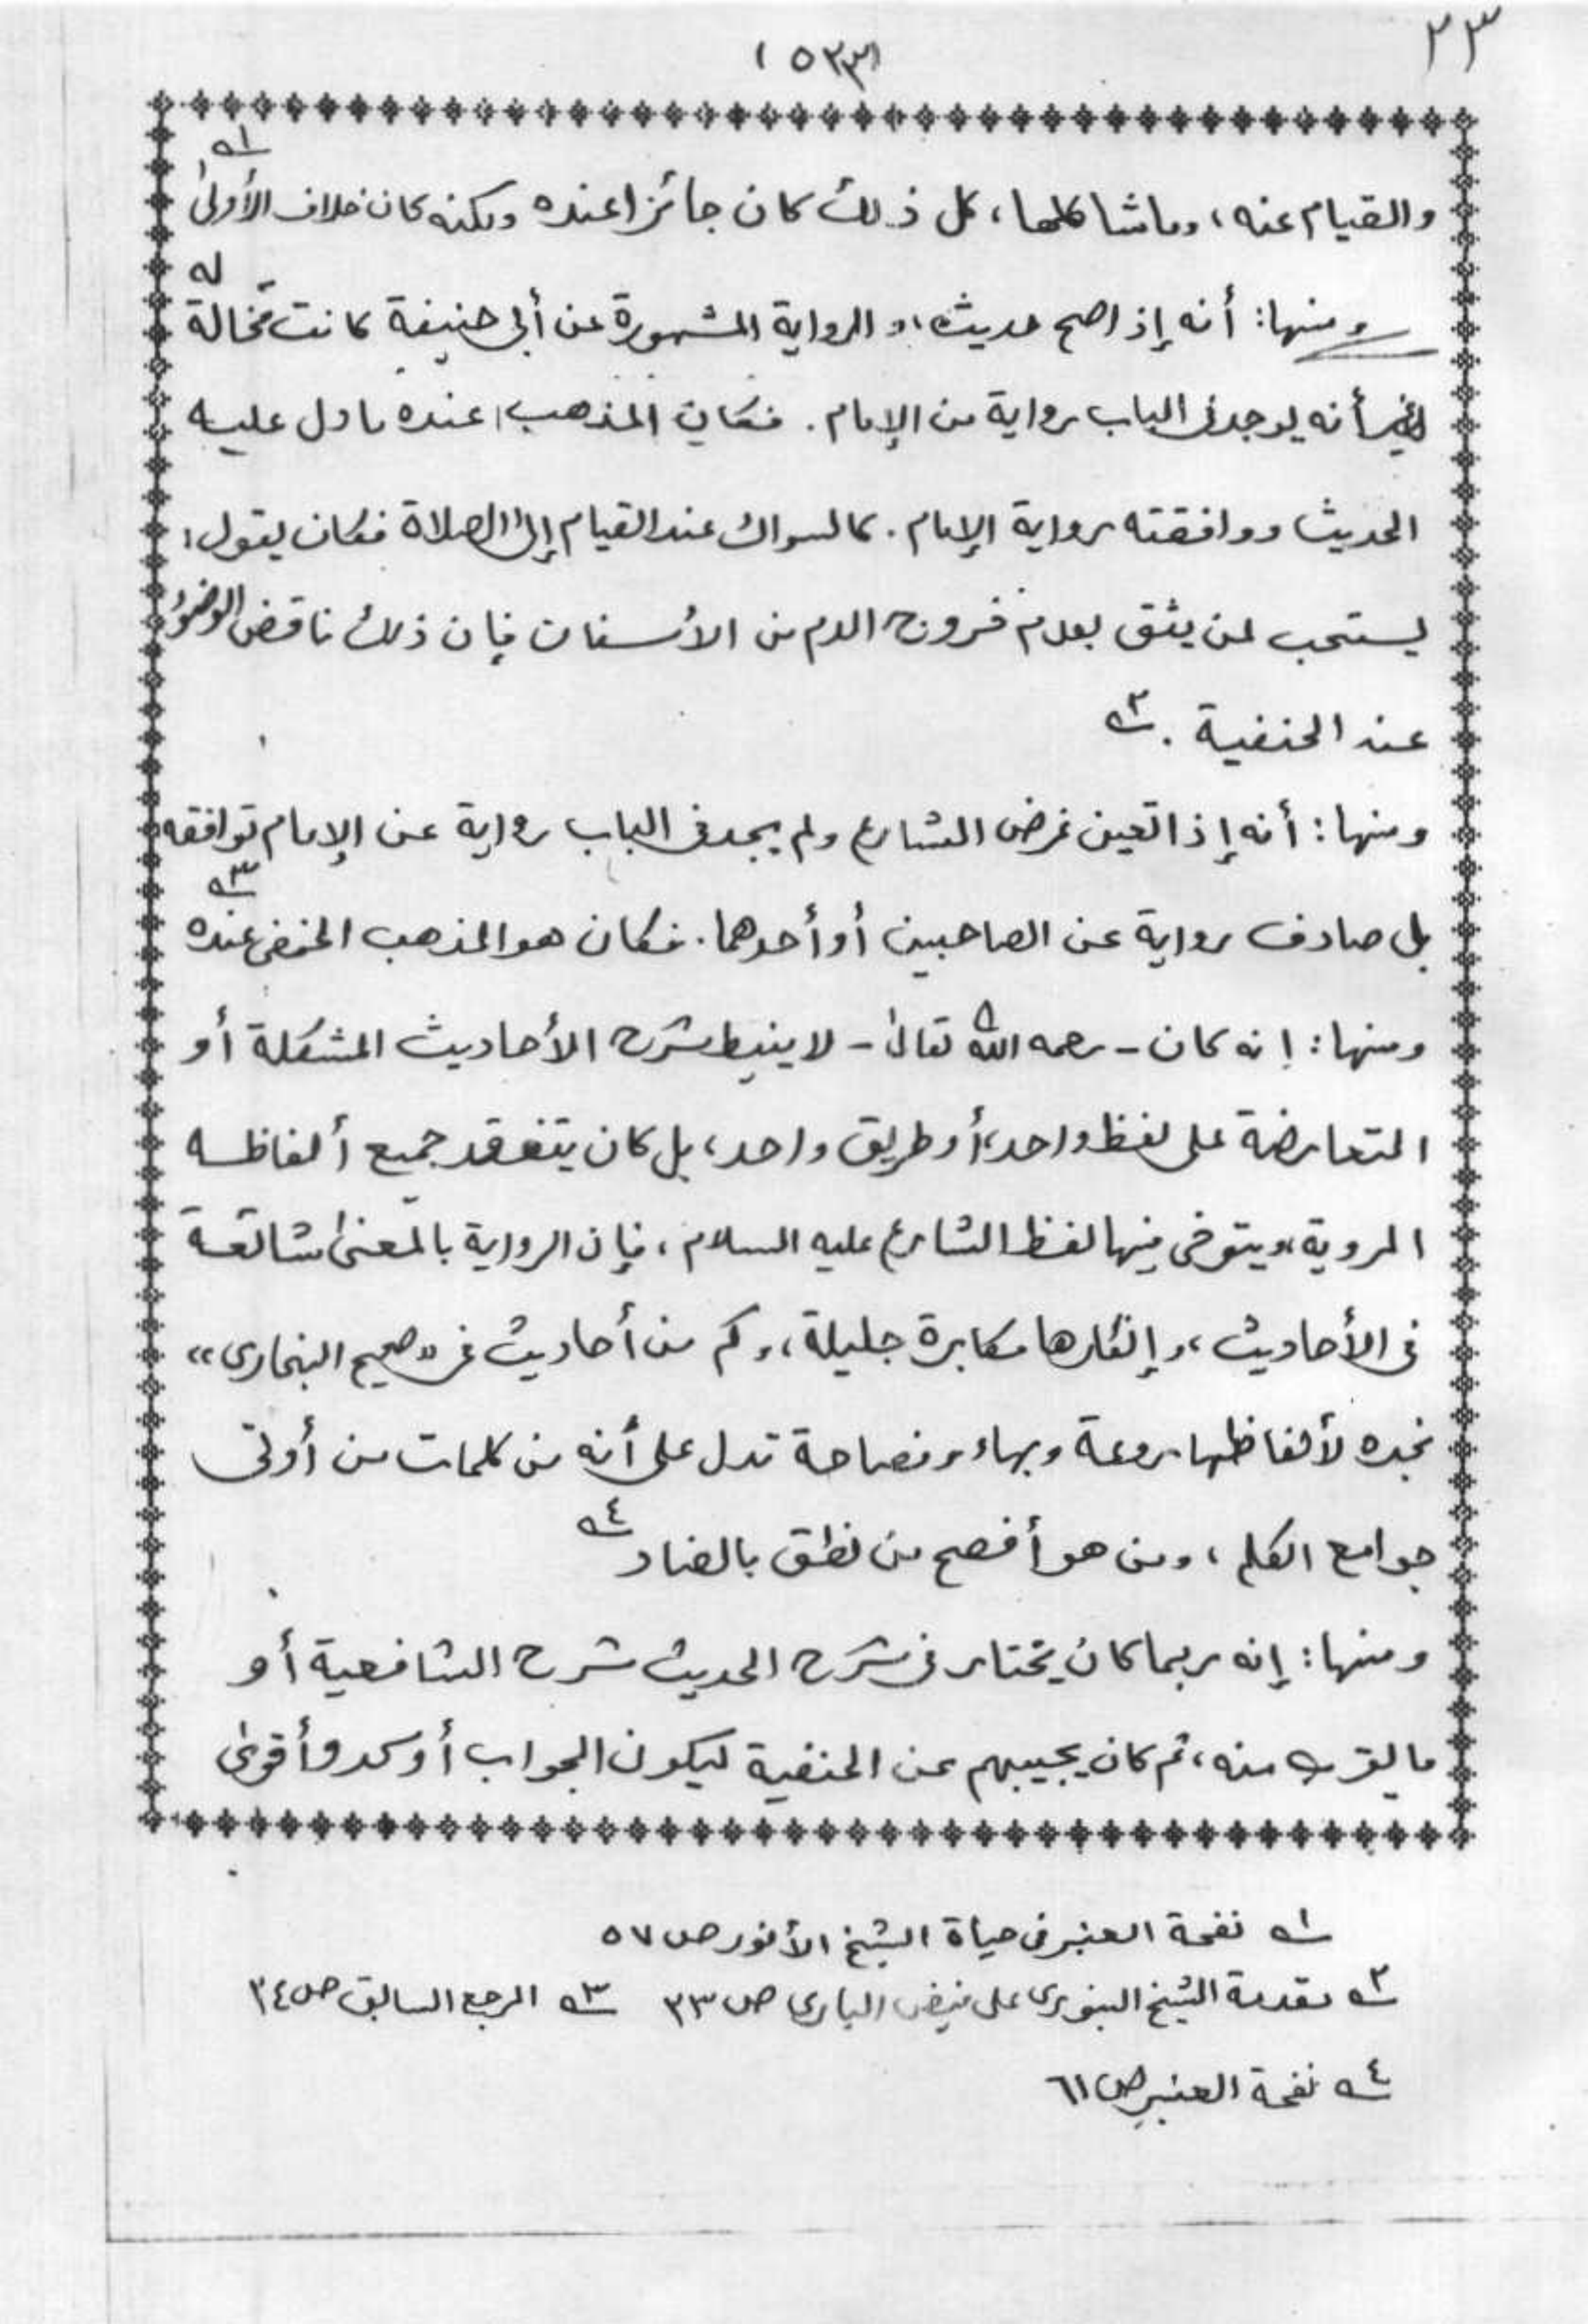 ٢٣
(٥٣٣)
والقيام عنه، وما شاكلها، كل ذلك كان جائزا عنده ولكنه كان خلاف الأولى ١ه
ومنها: أنه إذا صح حديث، والرواية المشهورة عن أبي حنيفة كانت مخالفة له
غير أنه يوجد فى الباب رواية من الإمام. فكان المذهب عنده ما دل عليه
الحديث ووافقته رواية الإمام. كالسواك عند القيام إلى الصلاة فكان يقول:
يستحب لمن يثق بعدم خروج الدم من الأسنان فإن ذلك ناقض الوضوء
عند الحنفية. ٢ه
ومنها: أنه إذا تعين غرض الشارع ولم يجد فى الباب رواية عن الإمام توافقه
بل صادف رواية عن الصاحبين أو أحدهما. فكان هو المذهب الحنفى عنده ٣ه
ومنها: إنه كان - رحمه الله تعالى - لا ينيط شرح الأحاديث المشكلة أو
المتعارضة على لفظ واحد، أو طريق واحد، بل كان يتفقد جميع ألفاظه
المروية، ويتوخى فيها لفظ الشارع عليه السلام، فإن الرواية بالمعنى شائعة
فى الأحاديث، وإنكارها مكابرة جليلة، وكم من أحاديث فى «صحيح البخارى»
نجده لألفاظها روعة وبهاء وفصاحة تدل على أنه من كلمات من أوتى
جوامع الكلم، ومن هو أفصح من نطق بالضاد ٤ه
ومنها: إنه ربما كان يختار فى شرح الحديث شرح الشافعية أو
ما يقرب منه، ثم كان يجيبهم عن الحنفية ليكون الجواب أوكد وأقوى
١ه نفحة العنبر فى حياة الشيخ الأنور ص ٥٧
٢ه مقدمة الشيخ البنورى على فيض البارى ص ٢٣ ٣ه المرجع السابق ص ٢٤
٤ه نفحة العنبر ص ٦١